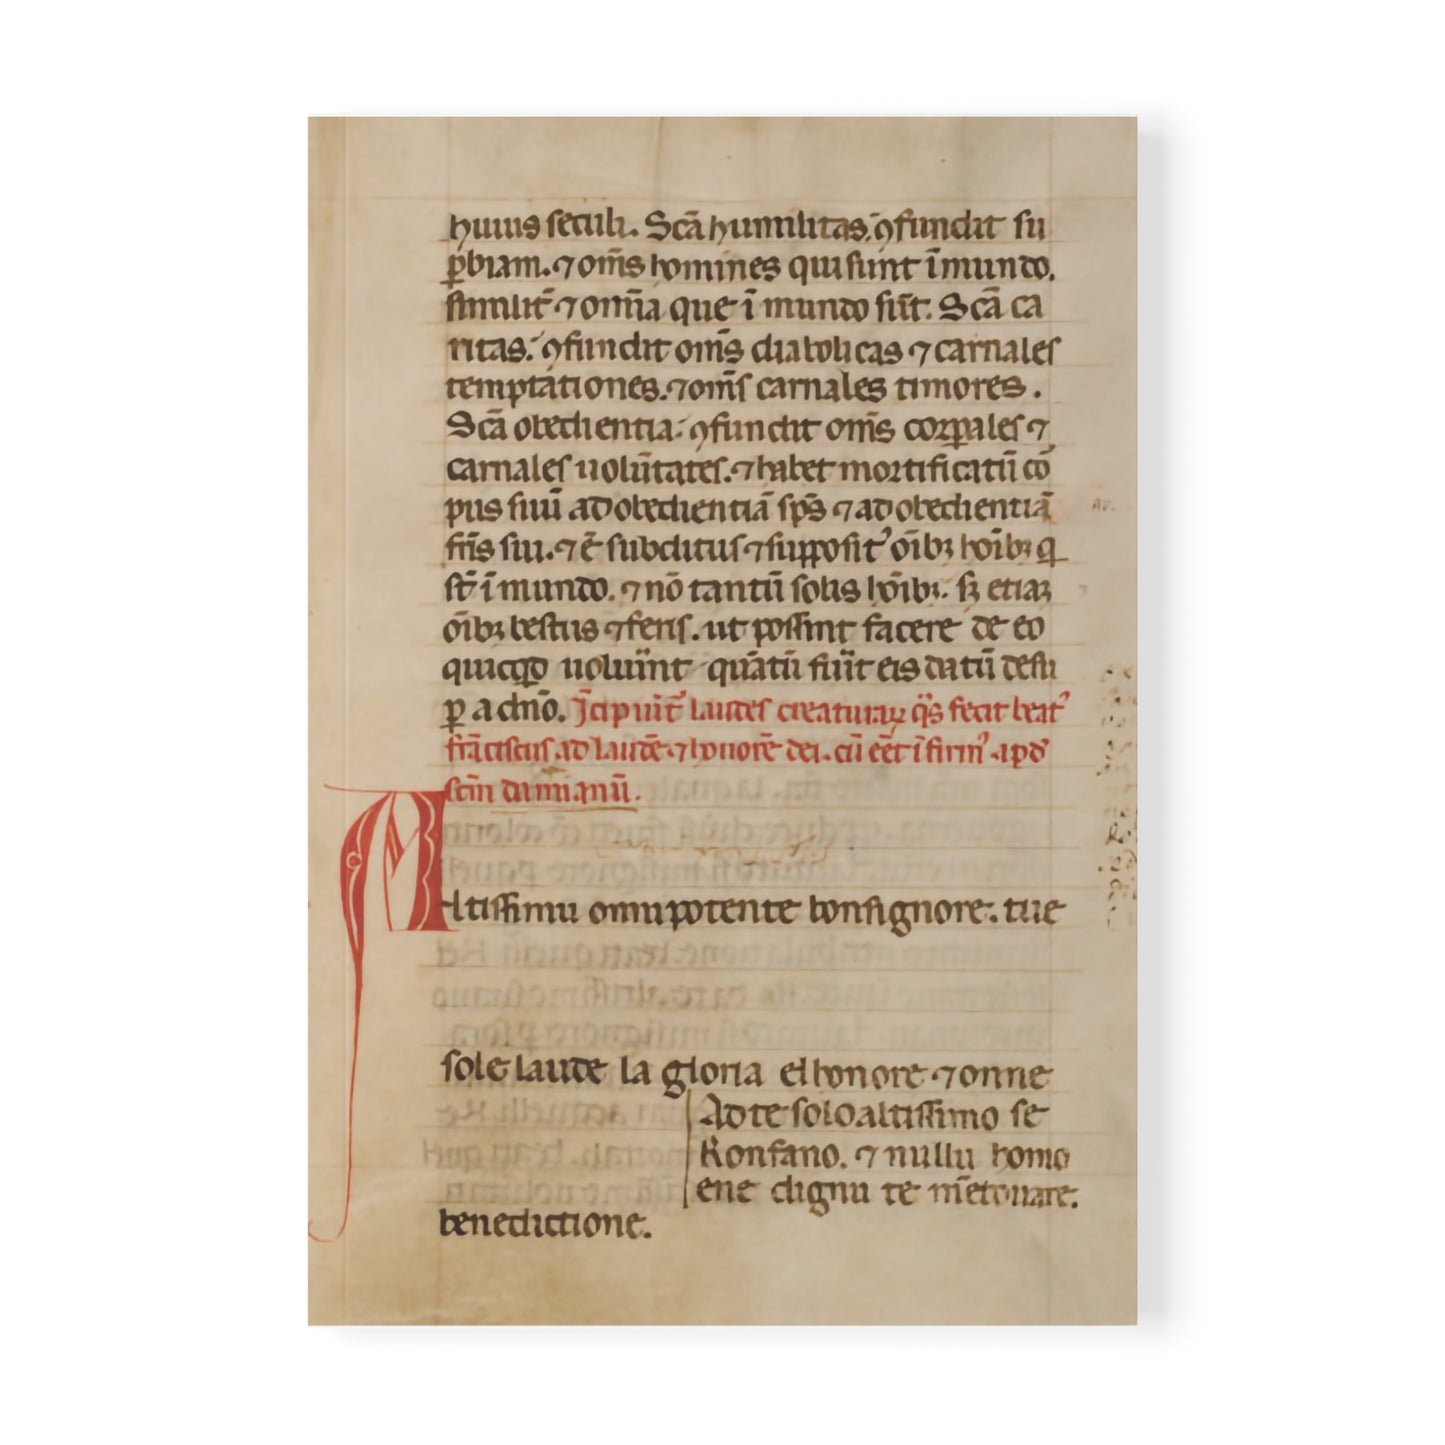 huius seculi. Scā humilitas. ꝯfundit su
ꝑbiam. ⁊ om̄s homines qui sunt ī mundo.
similit̄ ⁊ omīa que ī mundo sūt. Scā ca
ritas. ꝯfundit om̄s diabolicas ⁊ carnales
temptationes. ⁊ om̄s carnales timores.
Scā obedientia. ꝯfundit om̄s corꝑales ⁊
carnales uolūtates. ⁊ habet mortificatū cō
pus suū ad obedientiā sp̄s ⁊ ad obedientiā
fr̄is sui. ⁊ ē subditus ⁊ supposit᾽ oīb; hoīb; q̄
st̄ ī mundo. ⁊ nō tantū solis hoīb;. s; etiaꝫ
oīb; bestiis ⁊ feris. ut possint facere de eo
quicqd uoluīnt quātū fūit eis datū desu
ꝑ a dn̄o. Īcipiūt laudes creaturaꝝ q̄s fecit beat᾽
frāciscus ad laudē ⁊ honorē dei. cū eēt īfirm᾽ apd᾽
scm̄ damianū.
Altissimu omnipotente bonsignore. tue
sole laude la gloria el honore ⁊ onne
Ad te solo altissimo se
Konfano. ⁊ nullu homo
ene dignu te m̄etouare.
benedictione.